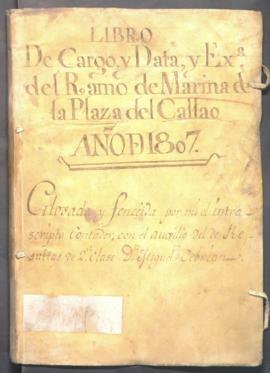 LIBRO
De Cargo, y Data, y Exª
del Ramo de Marina de
la Plaza del Callao
AÑO D 1807.
y fenecida por mi el infra
scripto Contador, con el auxilio del de Re
sultas de 2ª Clase Dn Miguel